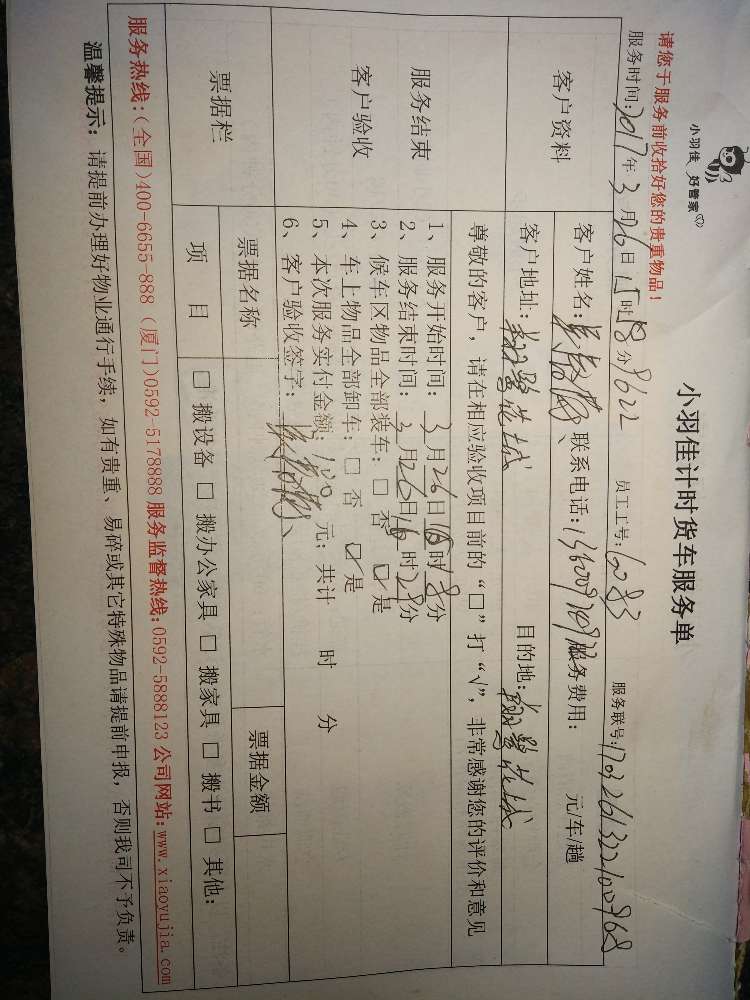 小羽佳 好管家
小羽佳计时货车服务单
请您于服务前收拾好您的贵重物品！
服务时间：2017年3月26日15时58分9622 员工工号：6083 服务联号：1703261322100968
客户资料
客户姓名： 联系电话： 服务费用： 元/车/趟
客户地址： 花城 目的地： 花城
尊敬的客户，请在相应验收项目前的“□”打“√”，非常感谢您的评价和意见
服务结束
客户验收
1、服务开始时间：3月26日16时18分
2、服务结束时间：3月26日16时28分
3、候车区物品全部装车：□ 否 ☑ 是
4、车上物品全部卸车：□ 否 ☑ 是
5、本次服务实付金额：120元；共计 时 分
6、客户验收签字：
票据栏
票据名称 票据金额
项 目 □ 搬设备 □ 搬办公家具 □ 搬家具 □ 搬书 □ 其他：
服务热线：（全国）400-6655-888（厦门）0592-5178888 服务监督热线：0592-5888123 公司网站：www.xiaoyujia.com
温馨提示：请提前办理好物业通行手续，如有贵重、易碎或其它特殊物品请提前申报，否则我司不予负责。